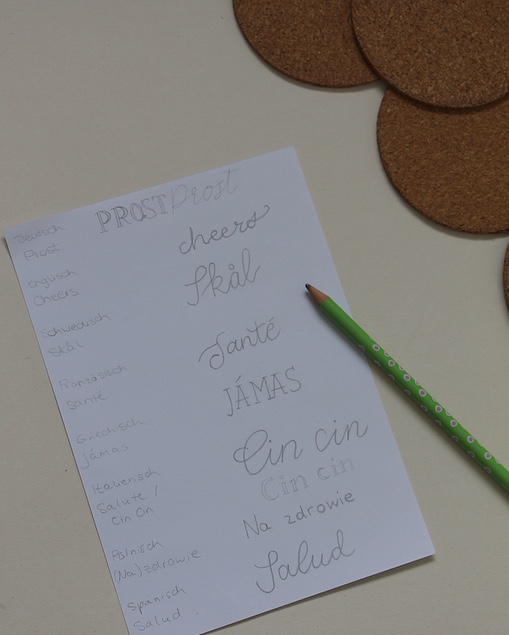 Deutsch
Prost
PROST Prost
Englisch
Cheers
cheers
Schwedisch
Skål
Skål
Französisch
Santé
Santé
Griechisch
Jámas
JÁMAS
Italienisch
Salute /
Cin Cin
Cin cin
Cin cin
Polnisch
(Na)zdrowie
Na zdrowie
Spanisch
Salud
Salud